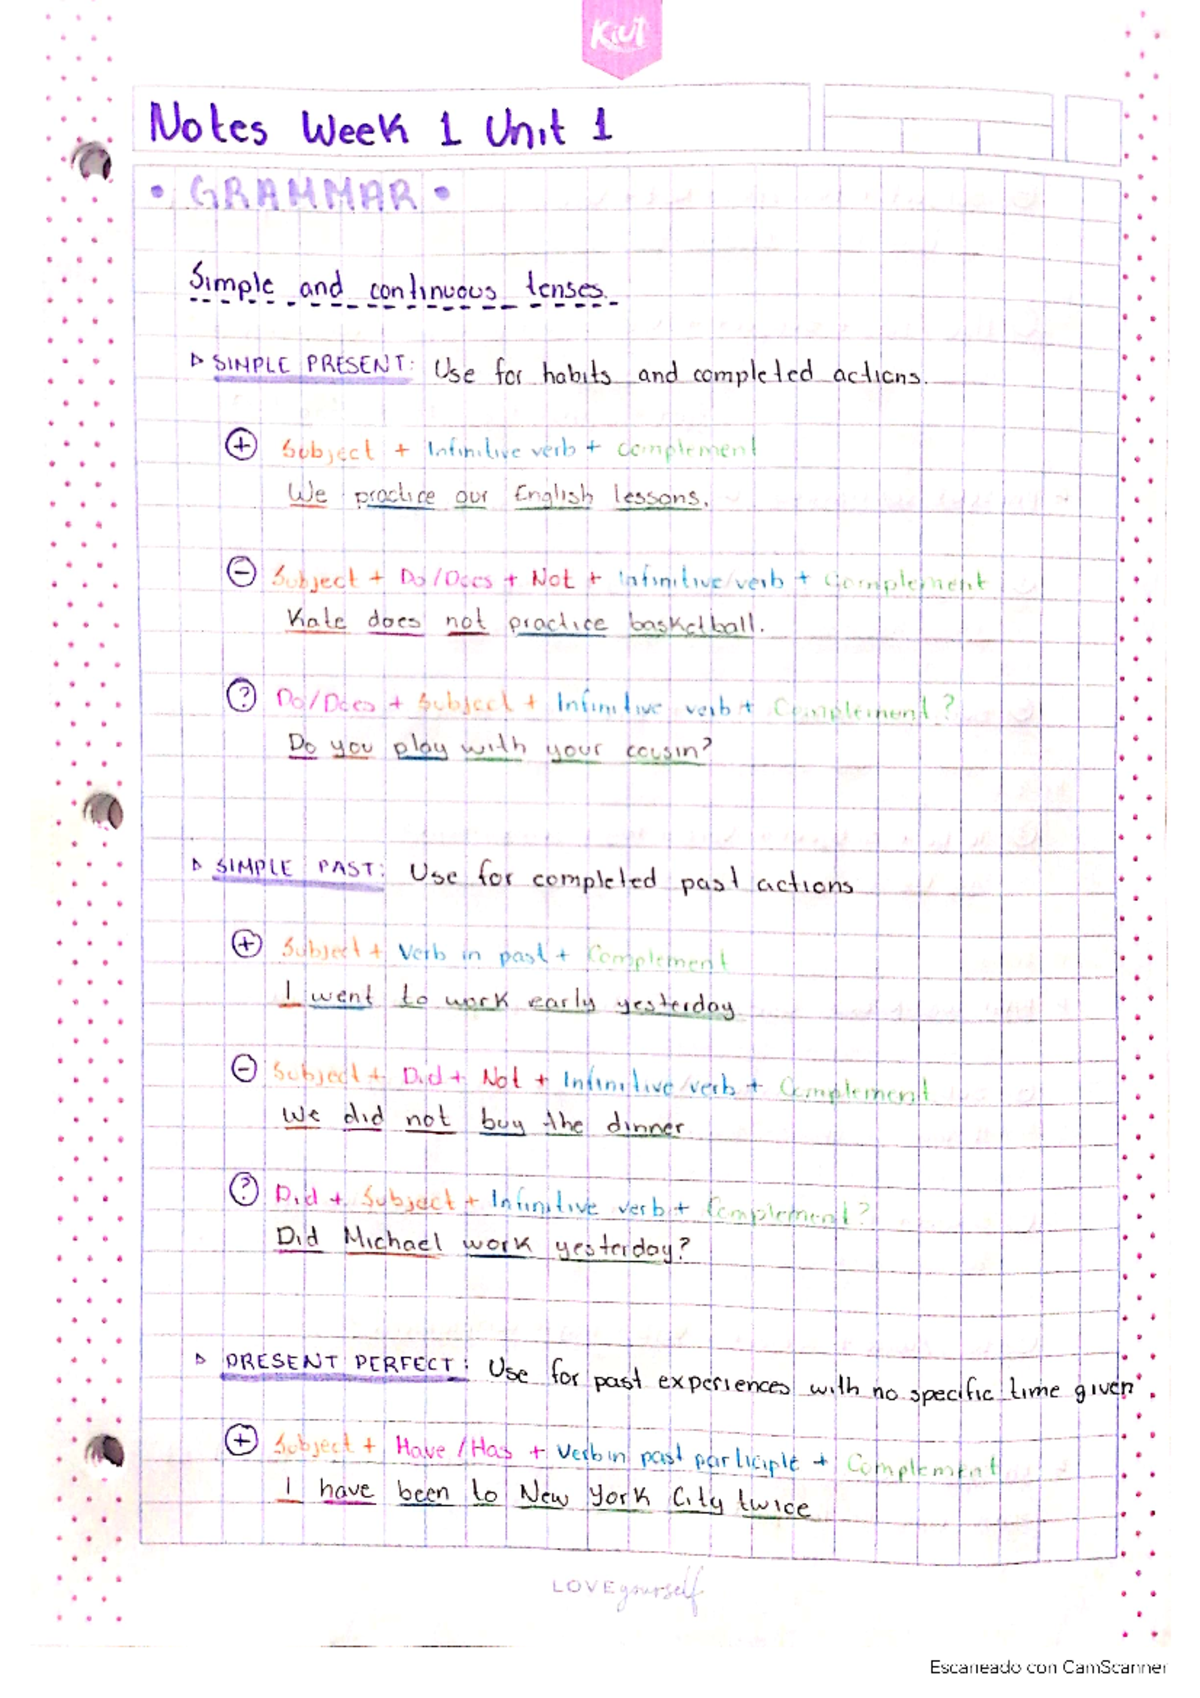 Kiut
Notes Week 1 Unit 1
• GRAMMAR •
Simple and continuous tenses.
▷ SIMPLE PRESENT: Use for habits and completed actions.
+ Subject + Infinitive verb + complement
We practice our English lessons.
- Subject + Do/Does + Not + Infinitive/verb + Complement
Kate does not practice basketball.
? Do/Does + Subject + Infinitive verb + Complement?
Do you play with your cousin?
▷ SIMPLE PAST: Use for completed past actions
+ Subject + Verb in past + Complement
I went to work early yesterday
- Subject + Did + Not + Infinitive/verb + Complement
We did not buy the dinner
? Did + Subject + Infinitive verb + Complement?
Did Michael work yesterday?
▷ PRESENT PERFECT: Use for past experiences with no specific time given.
+ Subject + Have/Has + Verb in past participle + Complement
I have been to New York City twice
LOVE yourself
Escaneado con CamScanner